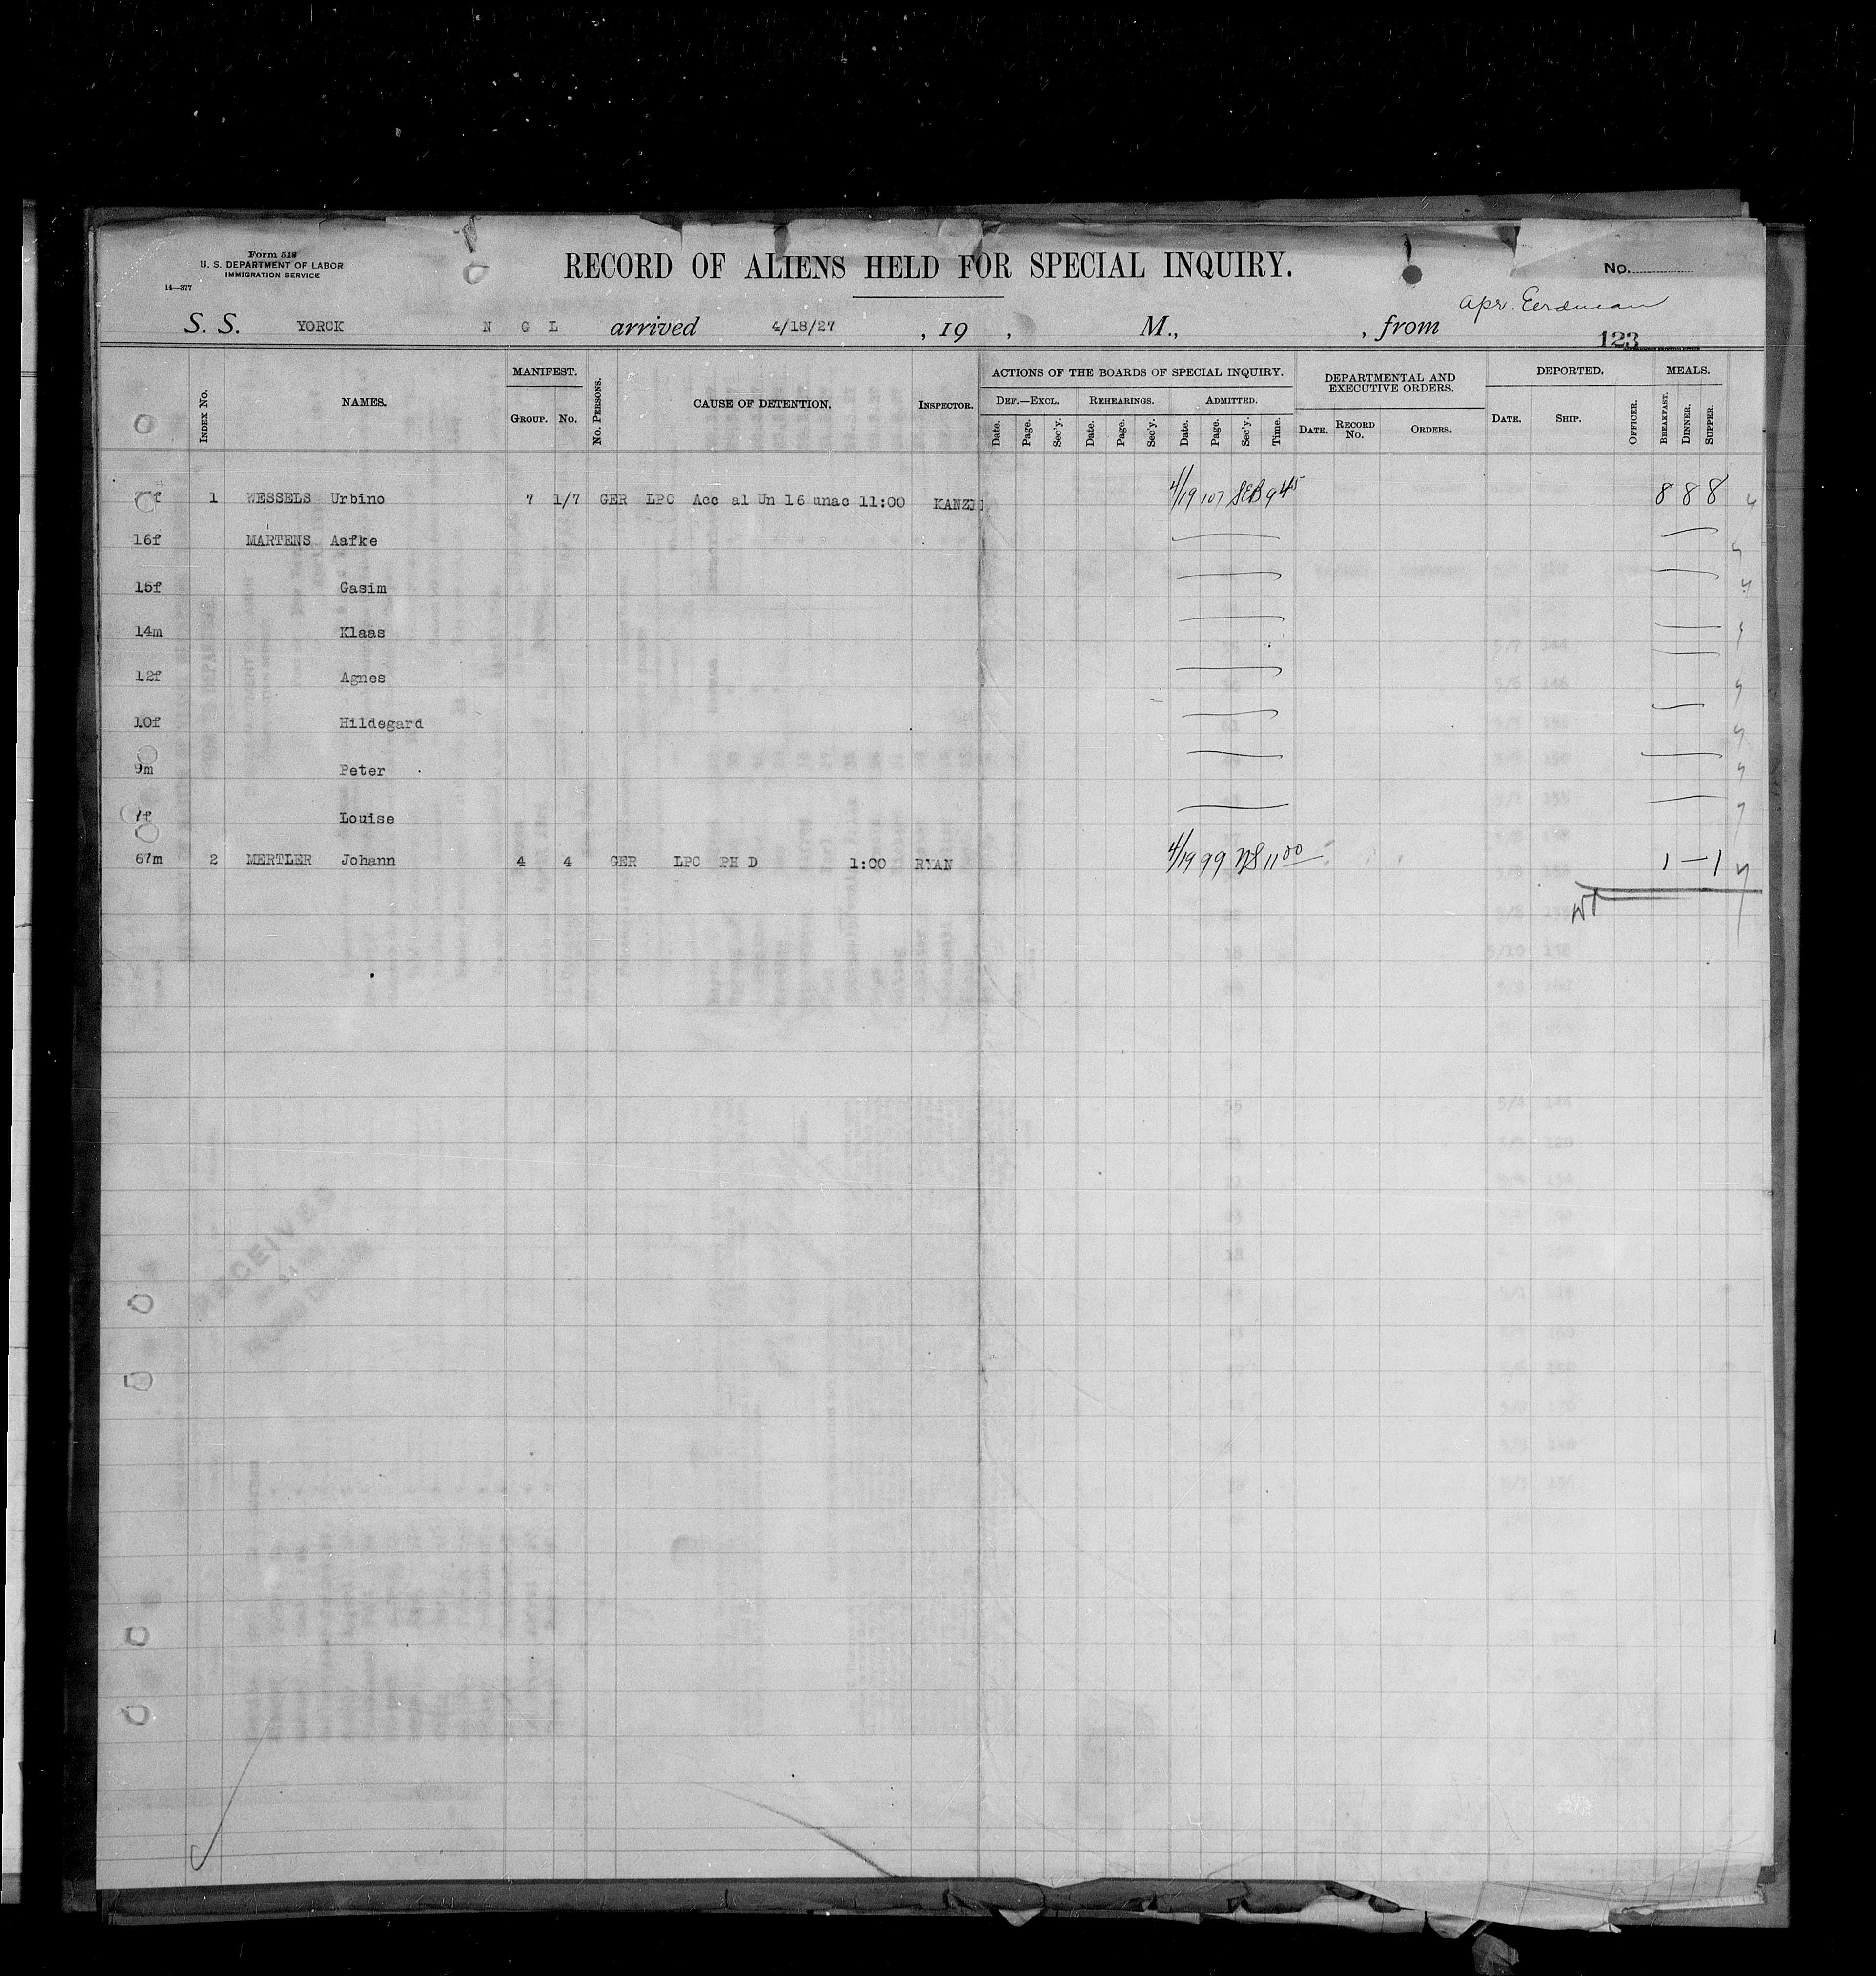 Form 518
U. S. DEPARTMENT OF LABOR
IMMIGRATION SERVICE
14—377
RECORD OF ALIENS HELD FOR SPECIAL INQUIRY.
No.
apr. Eerdman
S. S. YORCK N G L arrived 4/18/27, 19 , M., , from
123
INDEX No. NAMES. MANIFEST. GROUP. No. No. PERSONS. CAUSE OF DETENTION. INSPECTOR. ACTIONS OF THE BOARDS OF SPECIAL INQUIRY. DEF.—EXCL. Date. Page. Sec'y. REHEARINGS. Date. Page. Sec'y. ADMITTED. Date. Page. Sec'y. Time. DEPARTMENTAL AND EXECUTIVE ORDERS. DATE. RECORD No. ORDERS. DEPORTED. DATE. SHIP. OFFICER. MEALS. BREAKFAST. DINNER. SUPPER.
1 WESSELS Urbino 7 1/7 GER LPC Acc al Un 16 unac 11:00 4/19 107 SEB 9 45 8 8 8
16f MARTENS Aafke
15f Gasim
14m Klaas
12f Agnes
10f Hildegard
9m Peter
7f Louise
67m 2 MERTLER Johann 4 4 GER LPC PH D 1:00 RYAN 4/19 99 NS 11 00 1 — 1